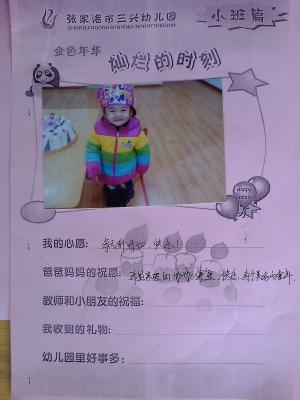 张家港市三兴幼儿园
小班篇
金色年华
灿烂的时刻
Happy
我的心愿: 每天都开心、快乐!
爸爸妈妈的祝愿:
教师和小朋友的祝福:
我收到的礼物:
幼儿园里好事多: